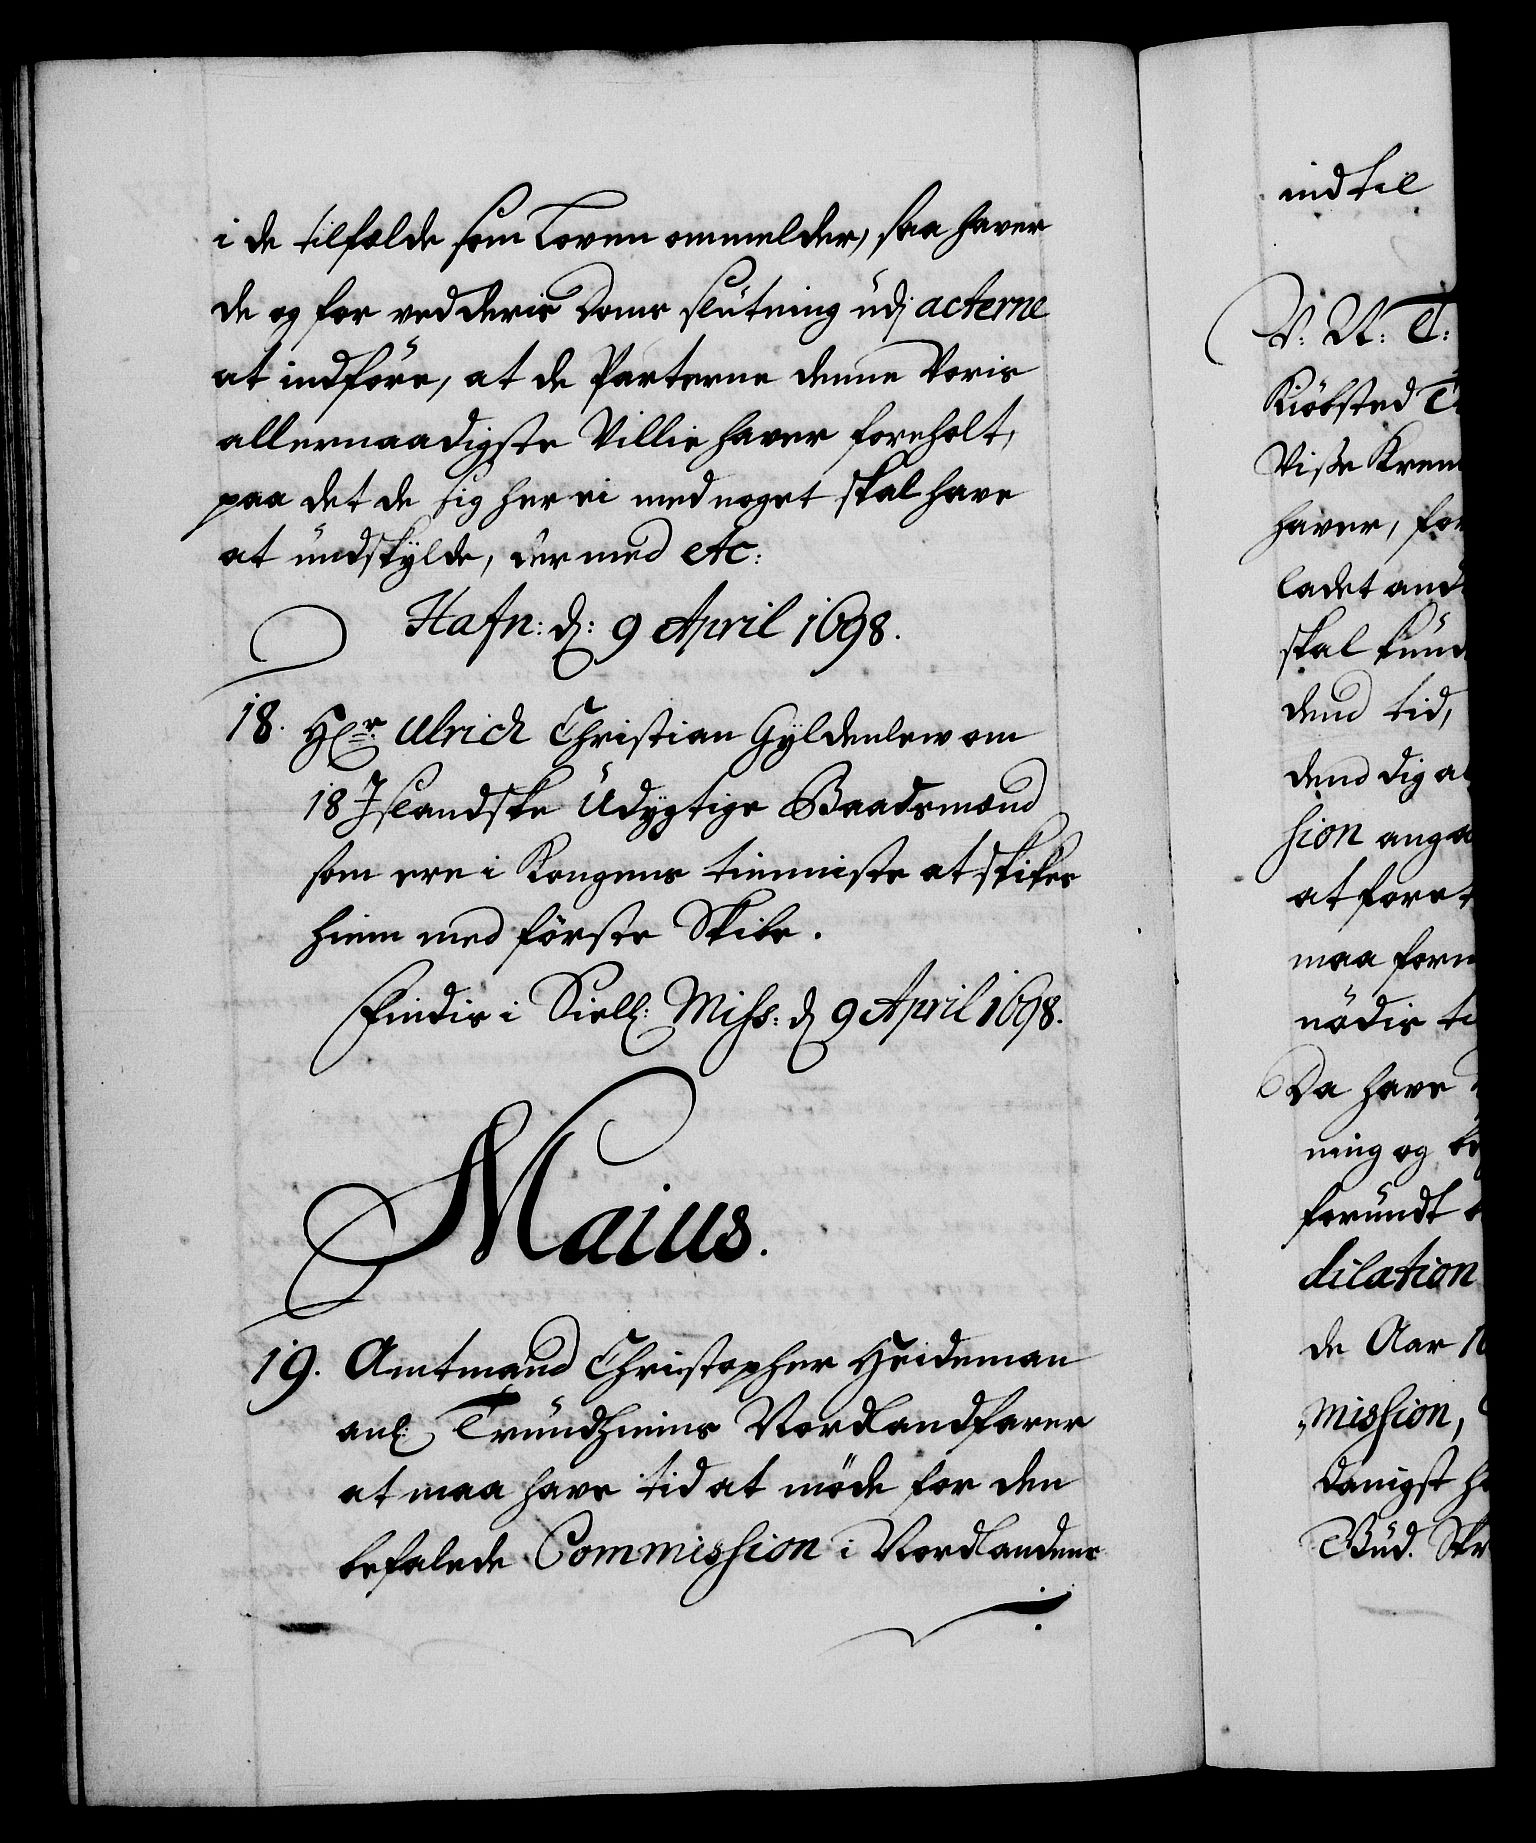 i de tilfælde som Loven ommelder, saa haver
de og for ved deris Doms slutning udj acterne
at indføre, at de Parterne denne Voris
allernaadigste Villie haver foreholt,
paa det de sig her ei med noget skal have
at undskylde, der med etc:
Hafn: d: 9 April 1698.
18. Hr. Ulrich Christian Gyldenlew om
18 Islandske Udygtige Baadsmænd
som ere i Kongens tienniste at skikes
hiem med første Skibe.
Findis i Siell: Miss: d 9 April 1698.
Maius.
19. Amtmand Christopher Heideman
anl: Trundhiems Nordlandfarer
at maa have tid at møde for den
befalede Commission i Nordlandene
ind til
V. U: T:
Kiøbsted
Visse
haver, for
ladet
skal
dend tid,
dend dig
sion
at
maa
nødis
Da have
ning og
forundt
dilation
de Aar
mission,
Danigst
Bud.